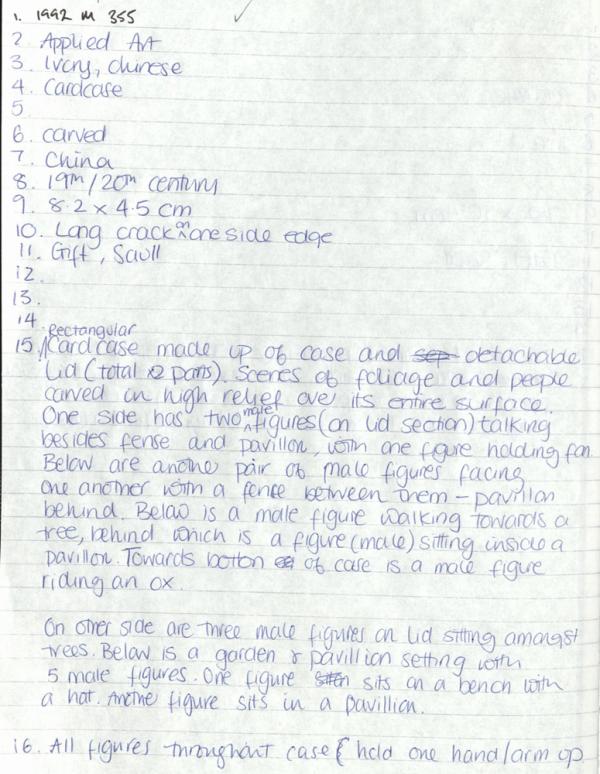 1. 1992 M 355
2. Applied Art
3. Ivory, chinese
4. Cardcase
5
6. carved
7. China
8. 19th/20th century
9. 8.2 x 4.5 cm
10. Long crack on one side edge
11. Gift, Saull
12.
13.
14
Rectangular
15. Cardcase made up of case and sep detachable
Lid (total 2 parts). Scenes of foliage and people
carved in high relief over its entire surface.
One side has two male figures (on lid section) talking
besides fense and pavilion, with one figure holding fan.
Below are another pair of male figures facing
one another with a fence between them - pavilion
behind. Below is a male figure walking towards a
tree, behind which is a figure (male) sitting inside a
pavillon. Towards botton of case is a male figure
riding an ox.
On other side are three male figures on lid sitting amongst
trees. Below is a garden & pavillion setting with
5 male figures. One figure sits on a bench with
a hat. Another figure sits in a pavillion.
16. All figures throughout case hold one hand/arm up